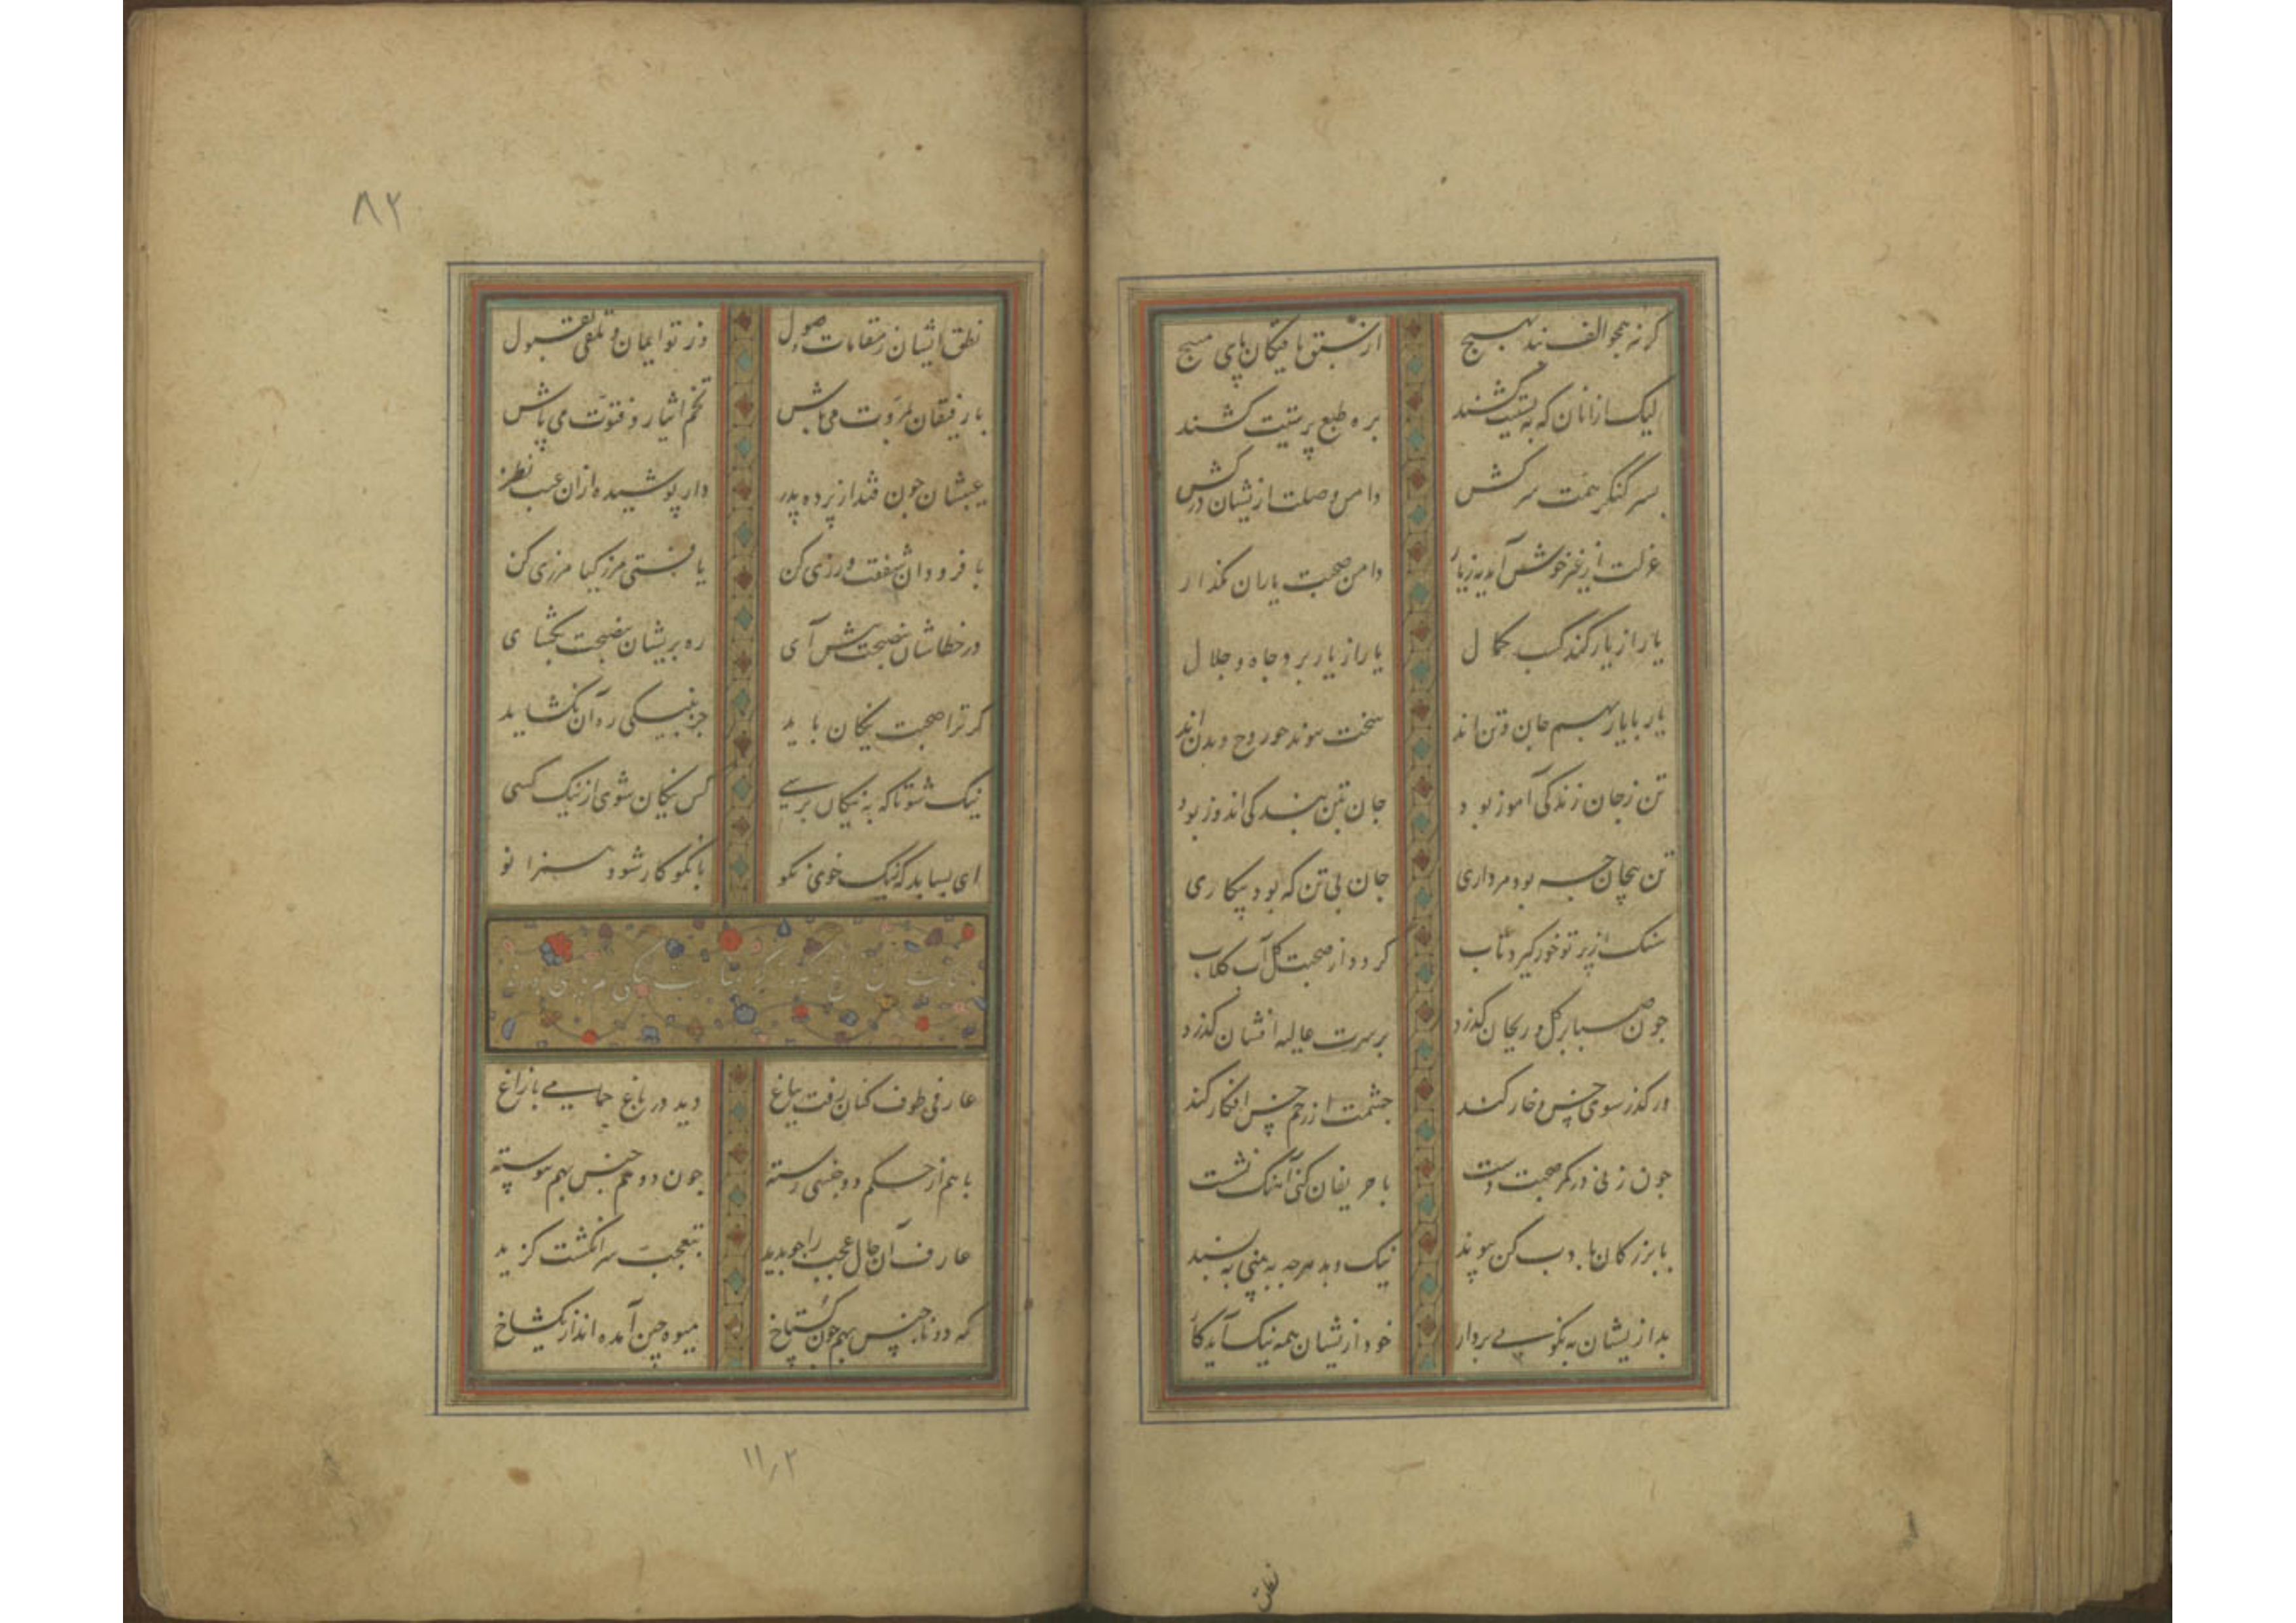 کرنه همجو الف ند بهیچ از سبق یافتکان پای مپیچ
لیک ازانان که به پستیت کشند بره طبع پرستیت کشند
بسر کنکر همت سرکش دامن وصلت ازیشان درکش
عزلت از غیر خوش آید نه زیار دامن صحبت یاران مکذار
یار از یار کند کسب کمال یار از یار برد جاه و جلال
یار با یار بهم جان و تن اند سخت پیوند چو روح و بدن اند
تن ز جان زندکی آموز بود جان بتن بندکی اندوز بود
تن بیجان چه بود مرداری جان بی تن که بود بیکاری
سنک از پرتو خور کیرد تاب کردد از صحبت کل آب کلاب
جون صبا بر کل و ریحان کذرد برسرت غالیه افشان کذرد
ور کذر سوی خس و خار کند جشمت از زخم خس افکار کند
جون زنی در کمر صحبت دست با حریفان کنی آهنک نشست
با بزرکان بادب کن پیوند نیک و بد هرجه به بینی به پسند
بد ازیشان به نکویی بردار خود ازیشان همه نیک آید کار
نطق
۸۲
نطق ایشان ز مقامات وصول وز تو ایمان و تلقی بقبول
با رفیقان بمروت می باش تخم ایثار و فتوت می پاش
عیبشان جون فتد از پرده بدر دار پوشیده ازان عیب نظر
با فرودان شفقت ورزی کن با مرزی کن
در خطاشان بنصیحت پیش آی ره بریشان بنصیحت بکشای
کر ترا صحبت نیکان باید جز بنیکی ره آن نکشاید
نیک شو تا که به نیکان برسی کس نیکان شوی از نیک کسی
ای بسا بد که نیک خوی نکو با نکوکار شود همزانو
عارفی طوف کنان رفت بباغ دید در باغ حمامی با زاغ
باهم از حکم دو جنسی رسته جون دو هم جنس بهم پیوسته
عارف آن حال عجب را جو بدید بتعجب سر انکشت کزید
که دو ناجنس بهم جون کستاخ میوه چین آمده اند از یک شاخ
۱۱٫۲